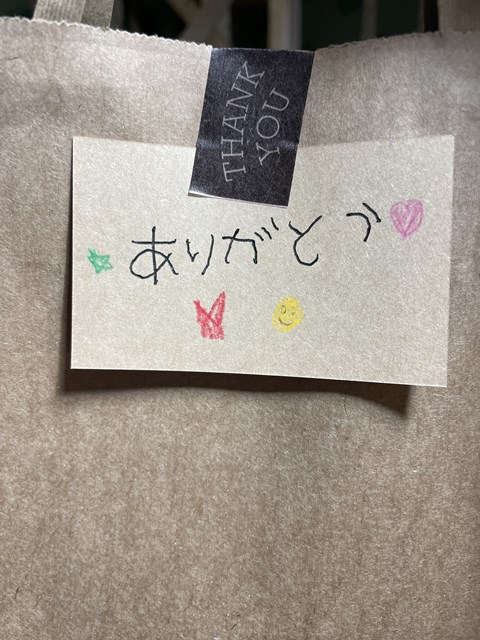 THANK
YOU
ありがとう